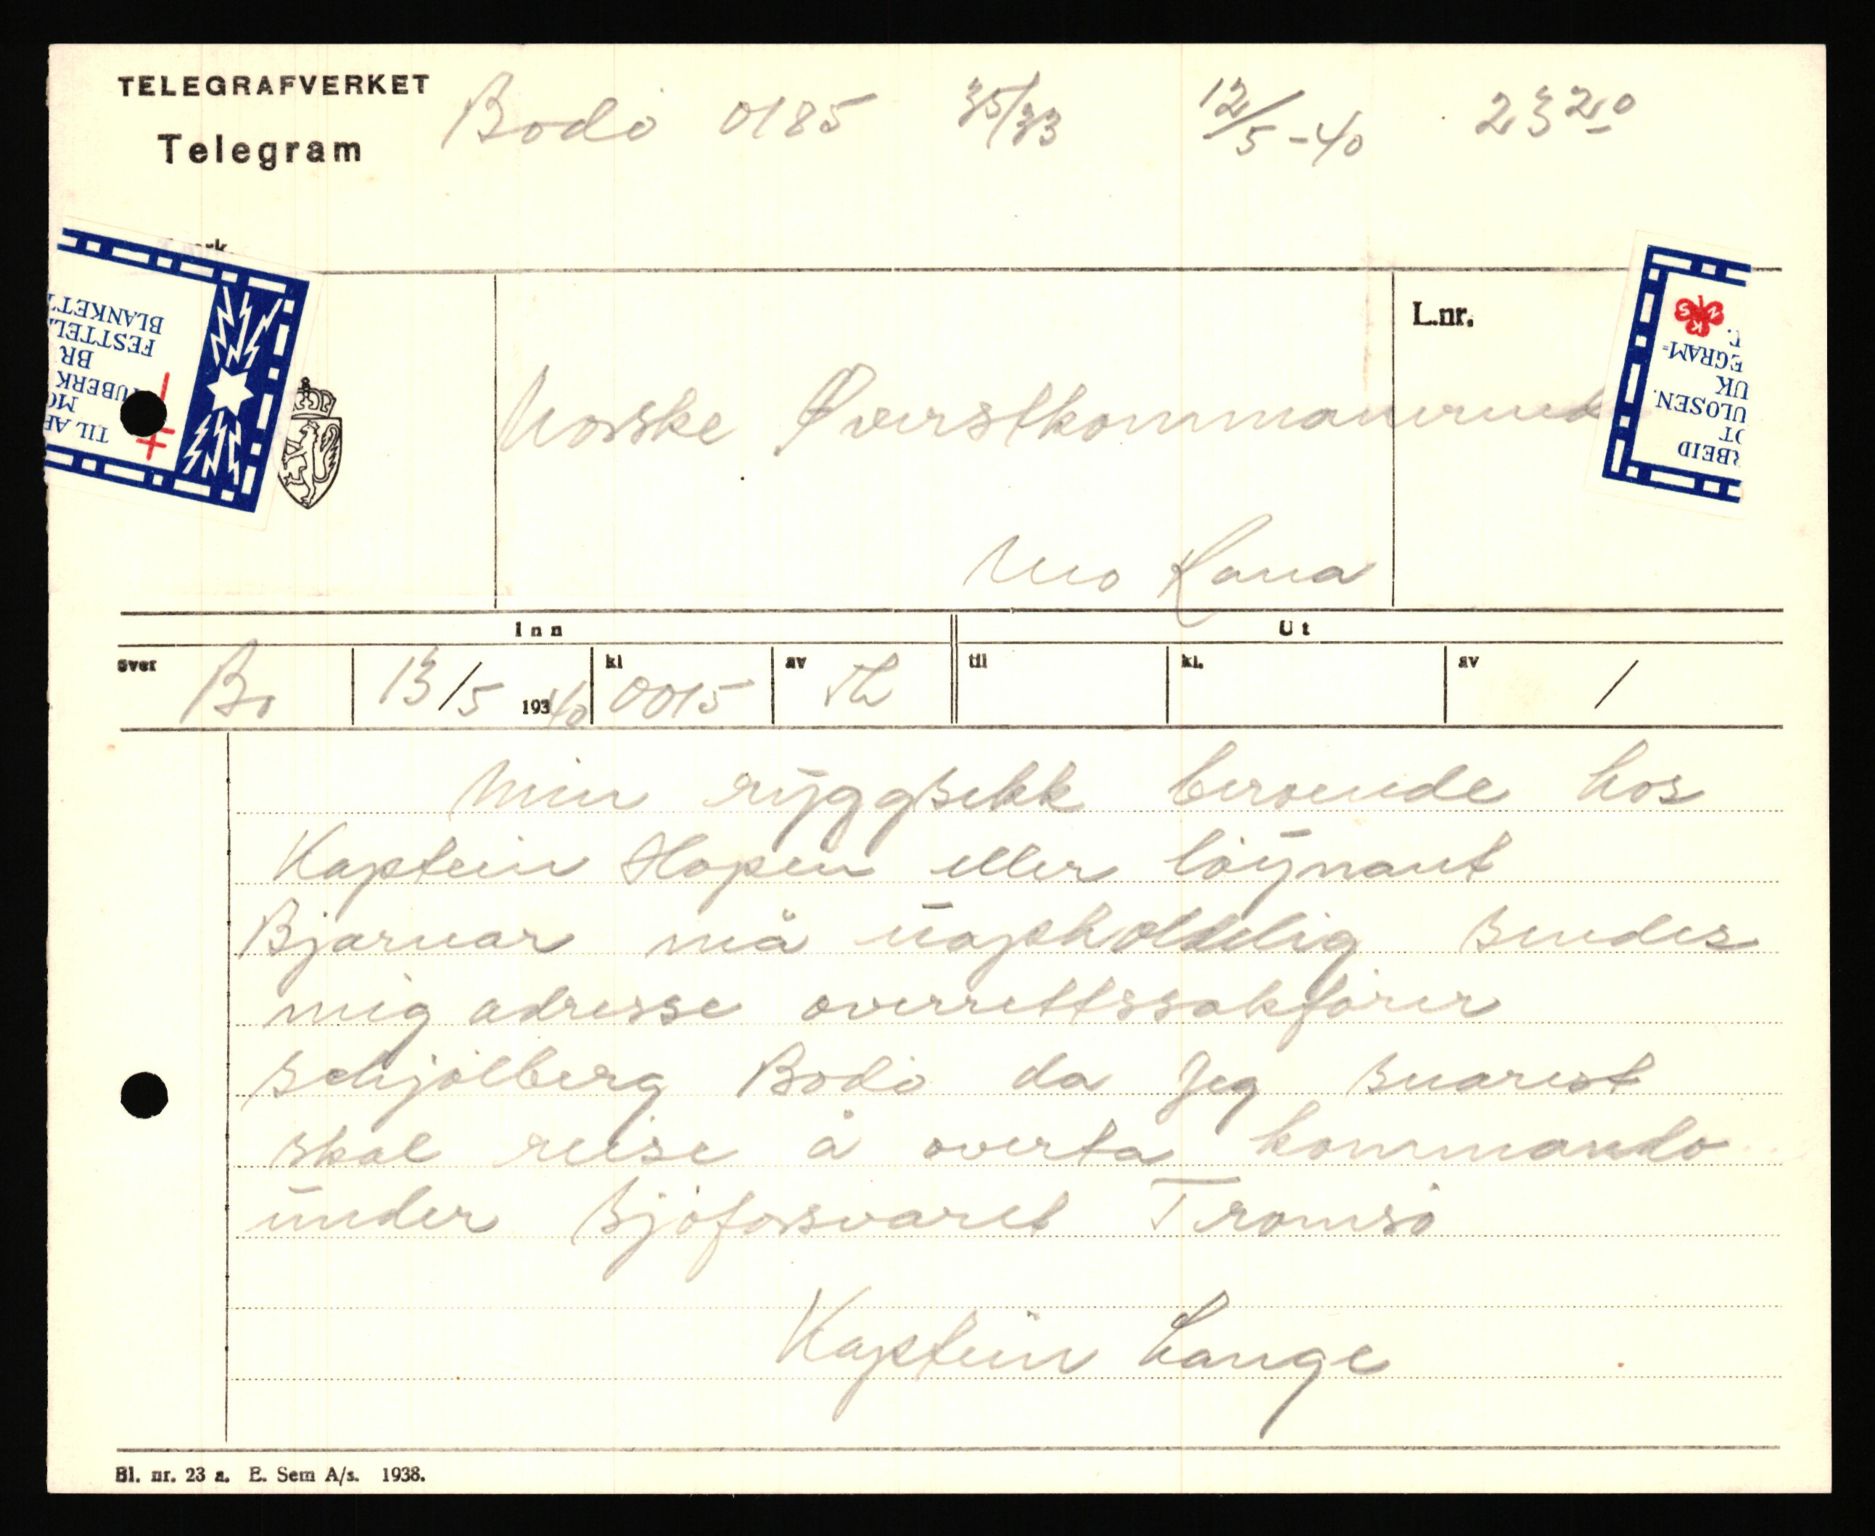 TELEGRAFVERKET
Telegram
Bodö 0185 35/33 12/5-40 23 20
L.nr.
Norske Øverstkommanerende
Mo Rana
Inn Ut
over Bo 13/5 1940 kl 0015 av til kl. av /
Min ryggsekk beroende hos
Kaptein Hopen eller löynant
Bjarnar må uopholdelig sendes
mig adresse overrettssakförer
Schjölberg Bodö da jeg snarest
skal reise å overta kommando
under Sjöforsvaret Tromsö
Kaptein Lange
Bl. nr. 23 a. E. Sem A/s. 1938.
TIL AR
MO
TUBERK
BR
FESTTEL
BLANKETT
RBEID
OT
ULOSEN.
UK
EGRAM=
T.
N K S